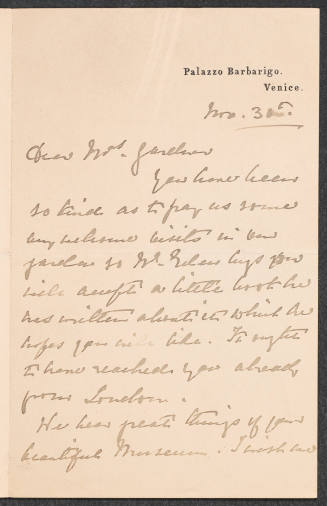 Palazzo Barbarigo.
Venice.
Nov. 30th.
Dear Mrs. Gardner
You have been
so kind as to pay us some
very welcome visits in our
garden so Mr. Eden begs you
will accept a little book he
has written about it which he
hopes you will like. It ought
to have reached you already
from London.
We hear great things of your
beautiful Museum. I wish we